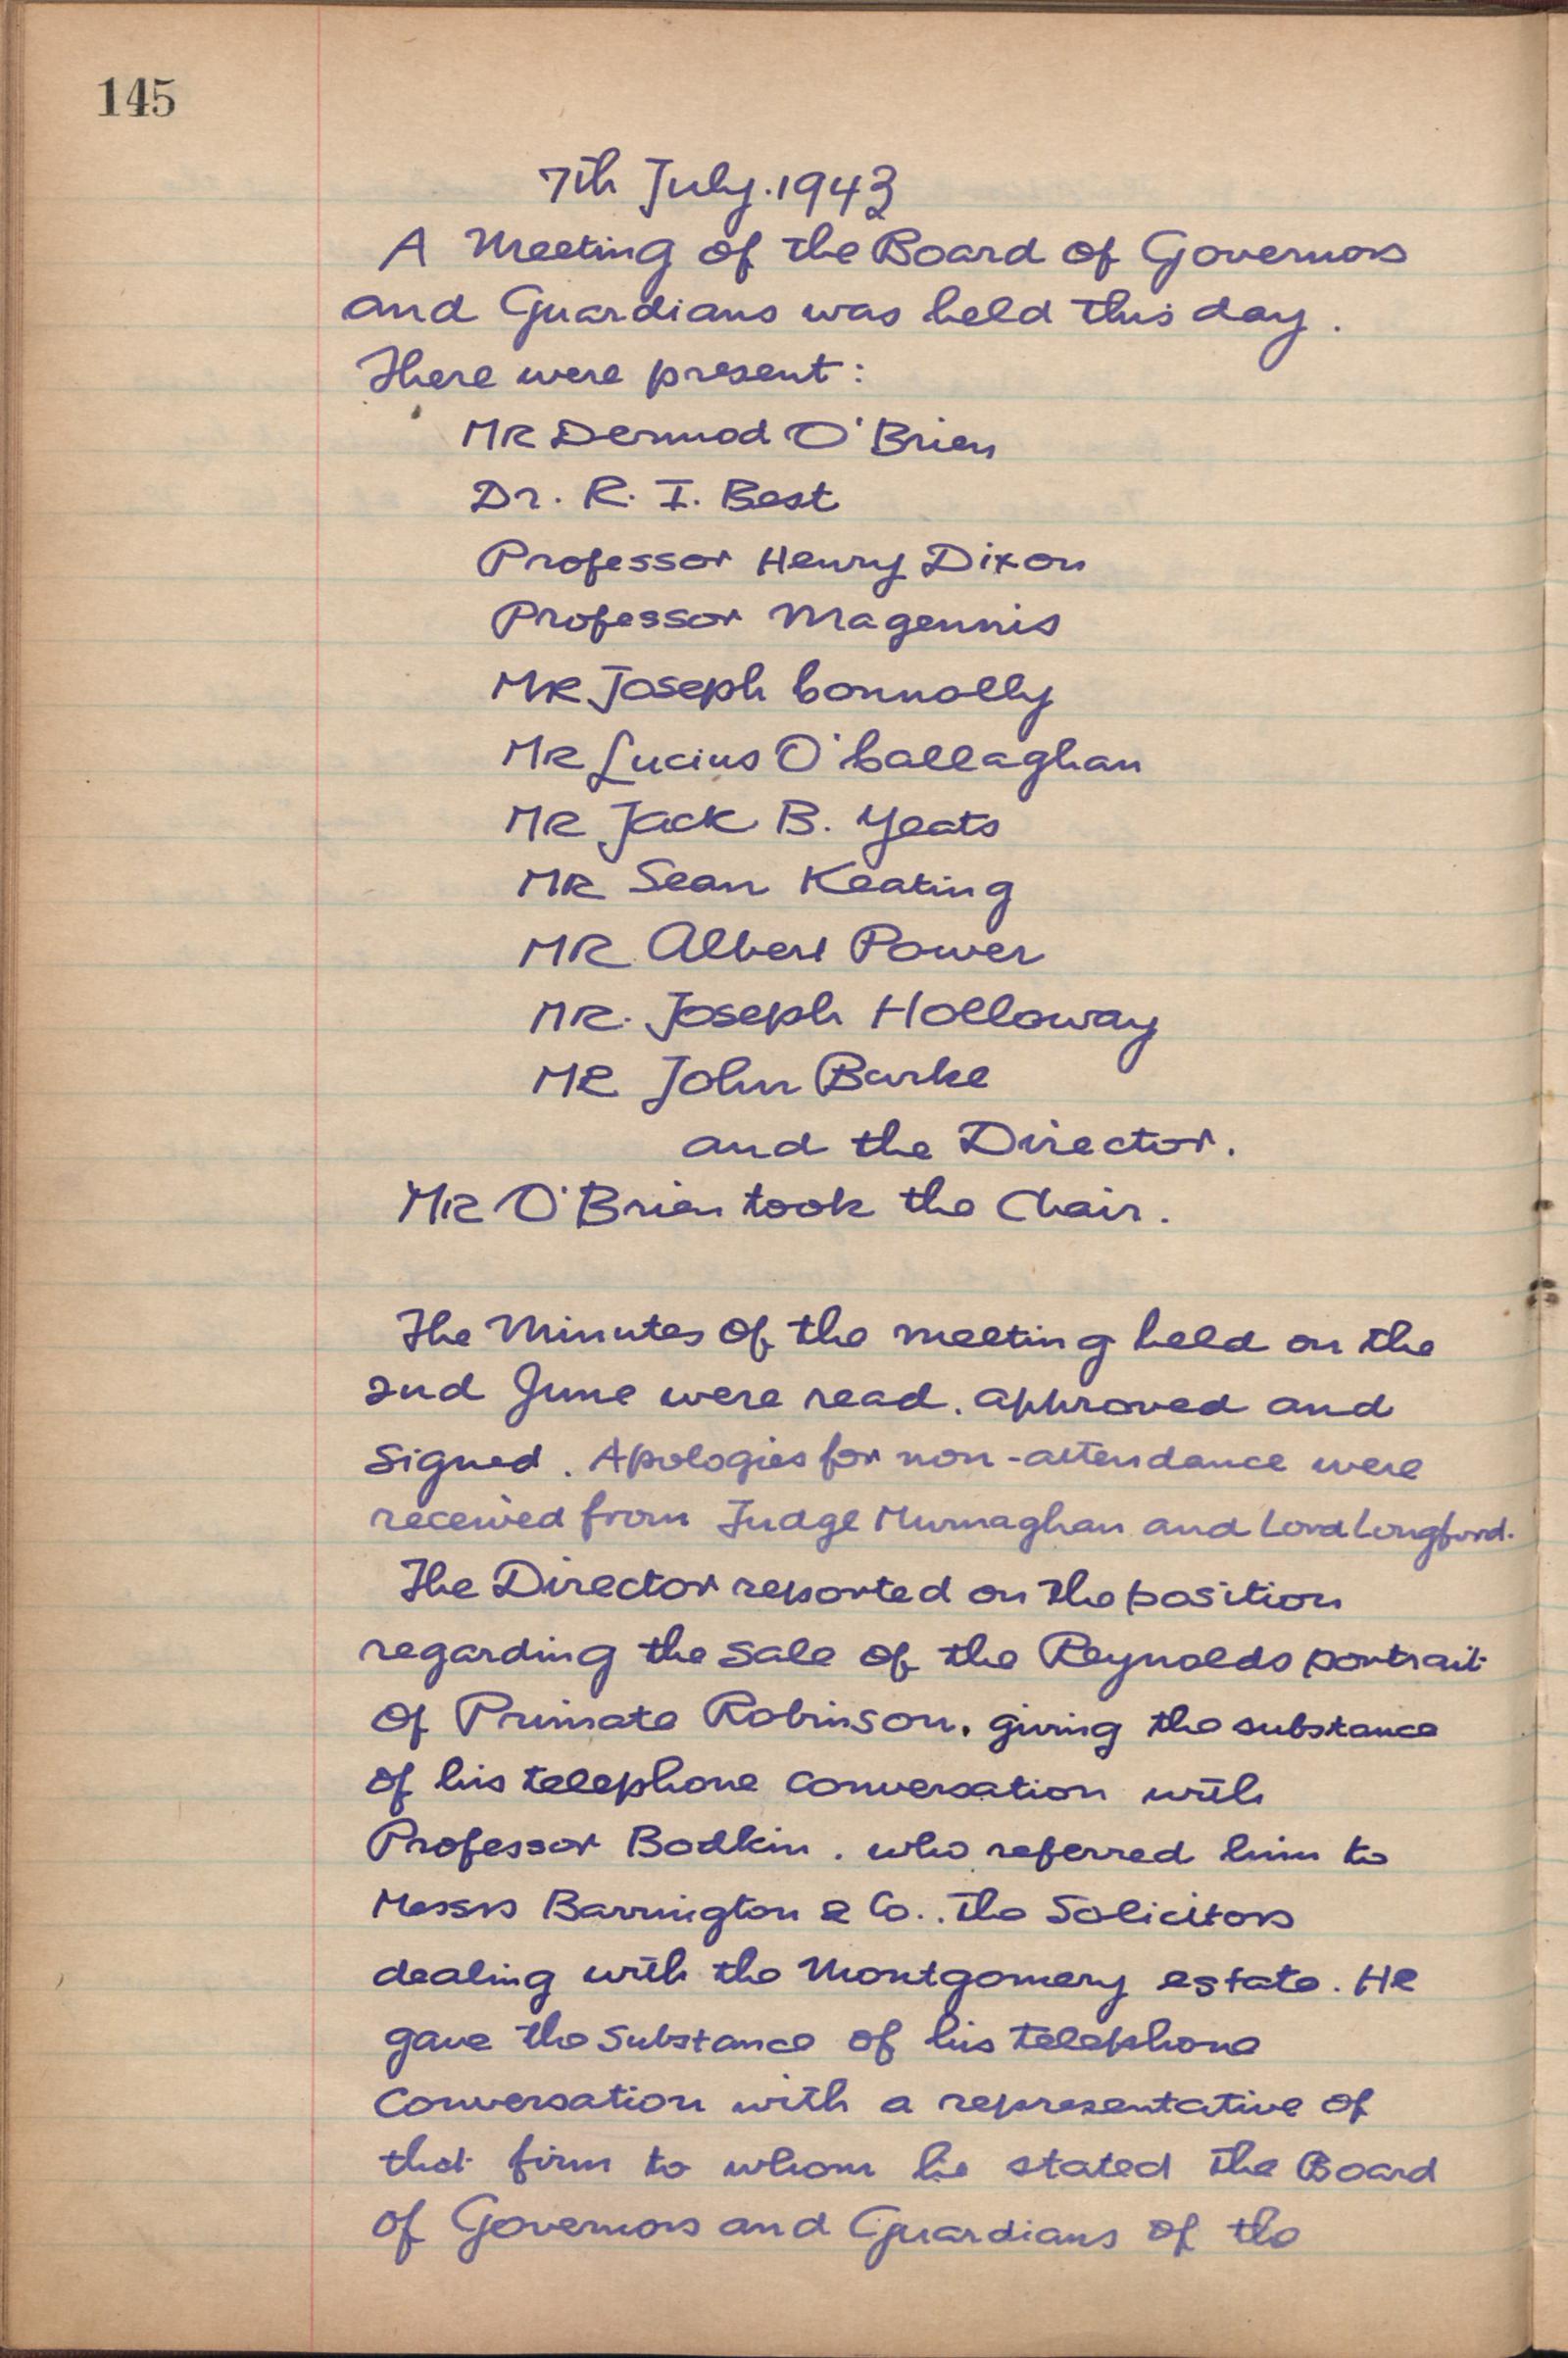 145
7th July. 1943
A Meeting of the Board of Governors
and Guardians was held this day.
There were present:
MR Dermod O'Brien
Dr. R. I. Best
Professor Henry Dixon
Professor Magennis
MR Joseph Connolly
MR Lucius O'Callaghan
MR Jack B. Yeats
MR Sean Keating
MR Albert Power
MR. Joseph Holloway
MR John Burke
and the Director.
MR O'Brien took the Chair.
The Minutes of the meeting held on the
2nd June were read, approved and
signed. Apologies for non-attendance were
received from Judge Murnaghan and Lord Longford.
The Director reported on the position
regarding the sale of the Reynolds portrait
of Primate Robinson, giving the substance
of his telephone conversation with
Professor Bodkin, who referred him to
Messrs Barrington & Co., the Solicitors
dealing with the Montgomery estate. He
gave the substance of his telephone
conversation with a representative of
that firm to whom he stated the Board
of Governors and Guardians of the